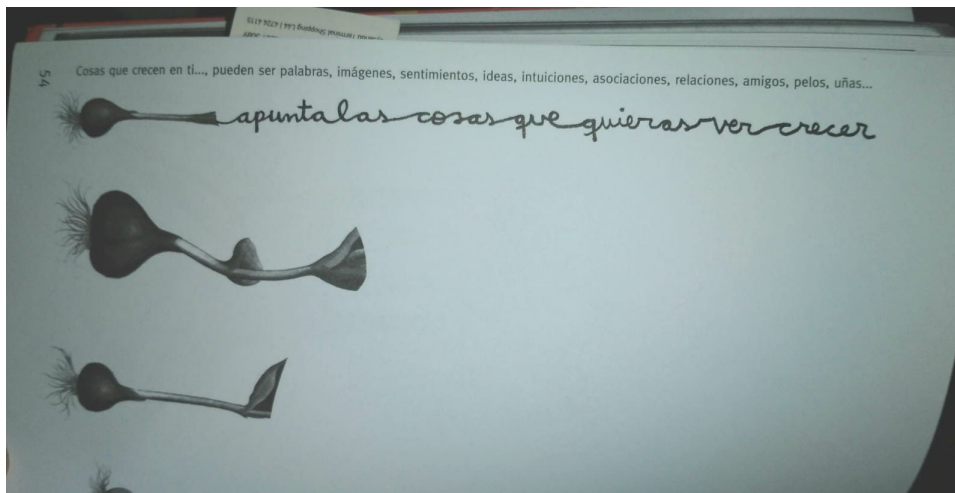 Cosas que crecen en ti..., pueden ser palabras, imágenes, sentimientos, ideas, intuiciones, asociaciones, relaciones, amigos, pelos, uñas...
apunta las cosas que quieras ver crecer
54